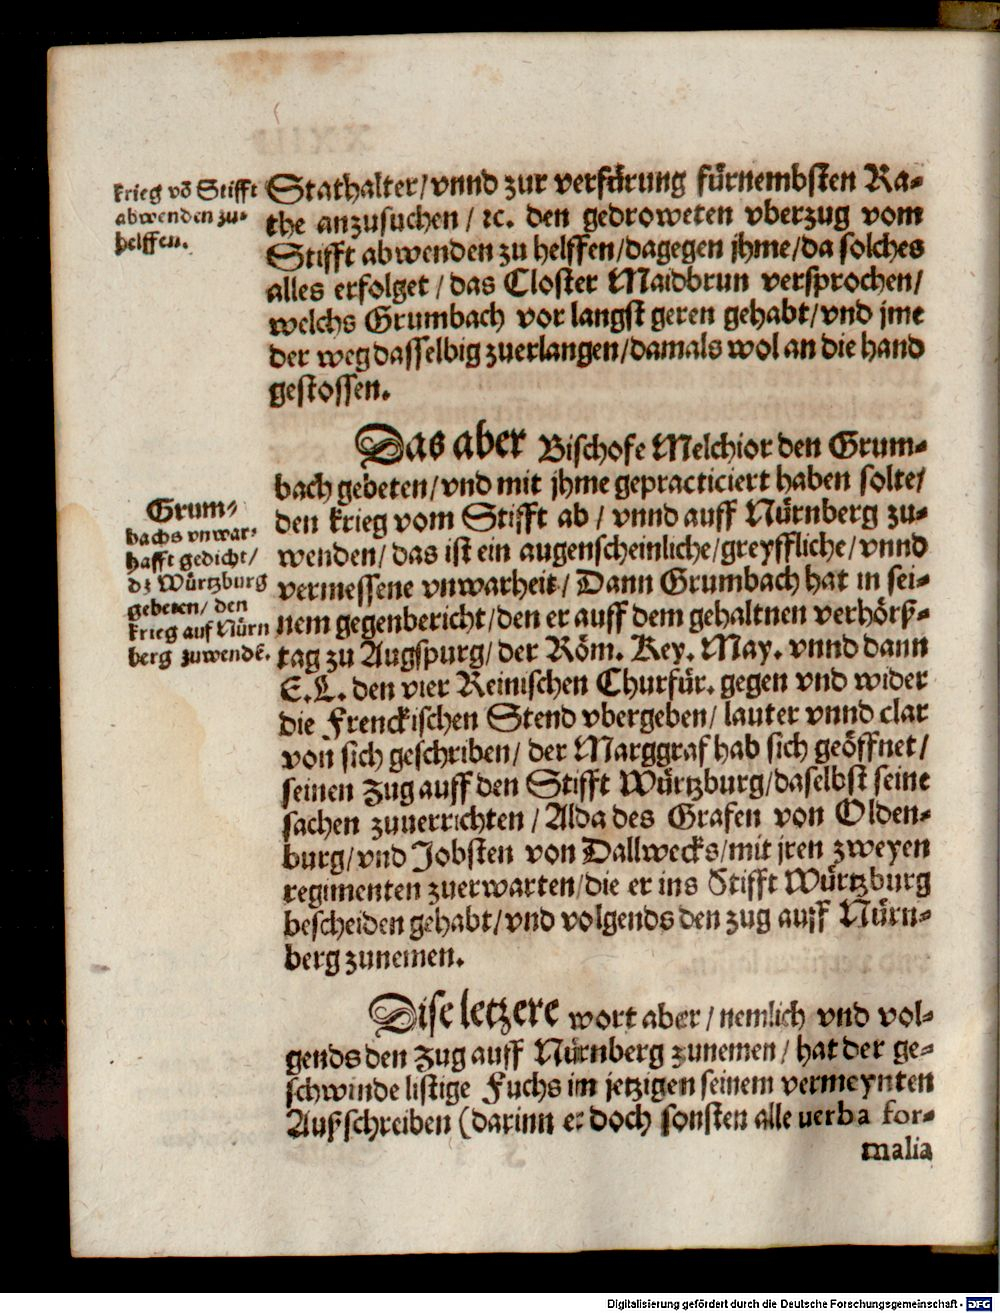 krieg võ Stifft
abwenden zu-
helffen.
Stathalter/vnnd zur verfürung fürnembsten Ra-
the anzusuchen/ ꝛc. den gedroweten vberzug vom
Stifft abwenden zu helffen/dagegen jhme/da solches
alles erfolget/das Closter Maidbrun versprochen/
welchs Grumbach vor langst geren gehabt/vnd jme
der weg dasselbig zuerlangen/damals wol an die hand
gestossen.
Das aber Bischofe Melchior den Grum-
bach gebeten/vnd mit jhme gepracticiert haben solte/
den krieg vom Stifft ab/ vnnd auff Nürnberg zu-
wenden/das ist ein augenscheinliche/greyffliche/vnnd
vermessene vnwarheit/ Dann Grumbach hat in sei-
nem gegenbericht/den er auff dem gehaltnen verhörß-
tag zu Augspurg/der Röm. Key. May. vnnd dann
E.L. den vier Reinischen Churfür. gegen vnd wider
die Frenckischen Stend vbergeben/ lauter vnnd clar
von sich geschriben/ der Marggraf hab sich geöffnet/
seinen Zug auff den Stifft Würtzburg/daselbst seine
sachen zuuerrichten/Alda des Grafen von Olden-
burg/vnd Jobsten von Dallwecks/mit jren zweyen
regimenten zuerwarten/die er ins Stifft Würtzburg
bescheiden gehabt/vnd volgends den zug auff Nürn-
berg zunemen.
Grum-
bachs vnwar-
hafft gedicht/
dz Würtzburg
gebeten/ den
krieg auf Nürn
berg zuwendē.
Dise letzere wort aber/nemlich vnd vol-
gends den Zug auff Nürnberg zunemen/hat der ge-
schwinde listige Fuchs im jetzigen seinem vermeynten
Außschreiben (darinn er doch sonsten alle verba for-
malia
Digitalisierung gefördert durch die Deutsche Forschungsgemeinschaft - DFG